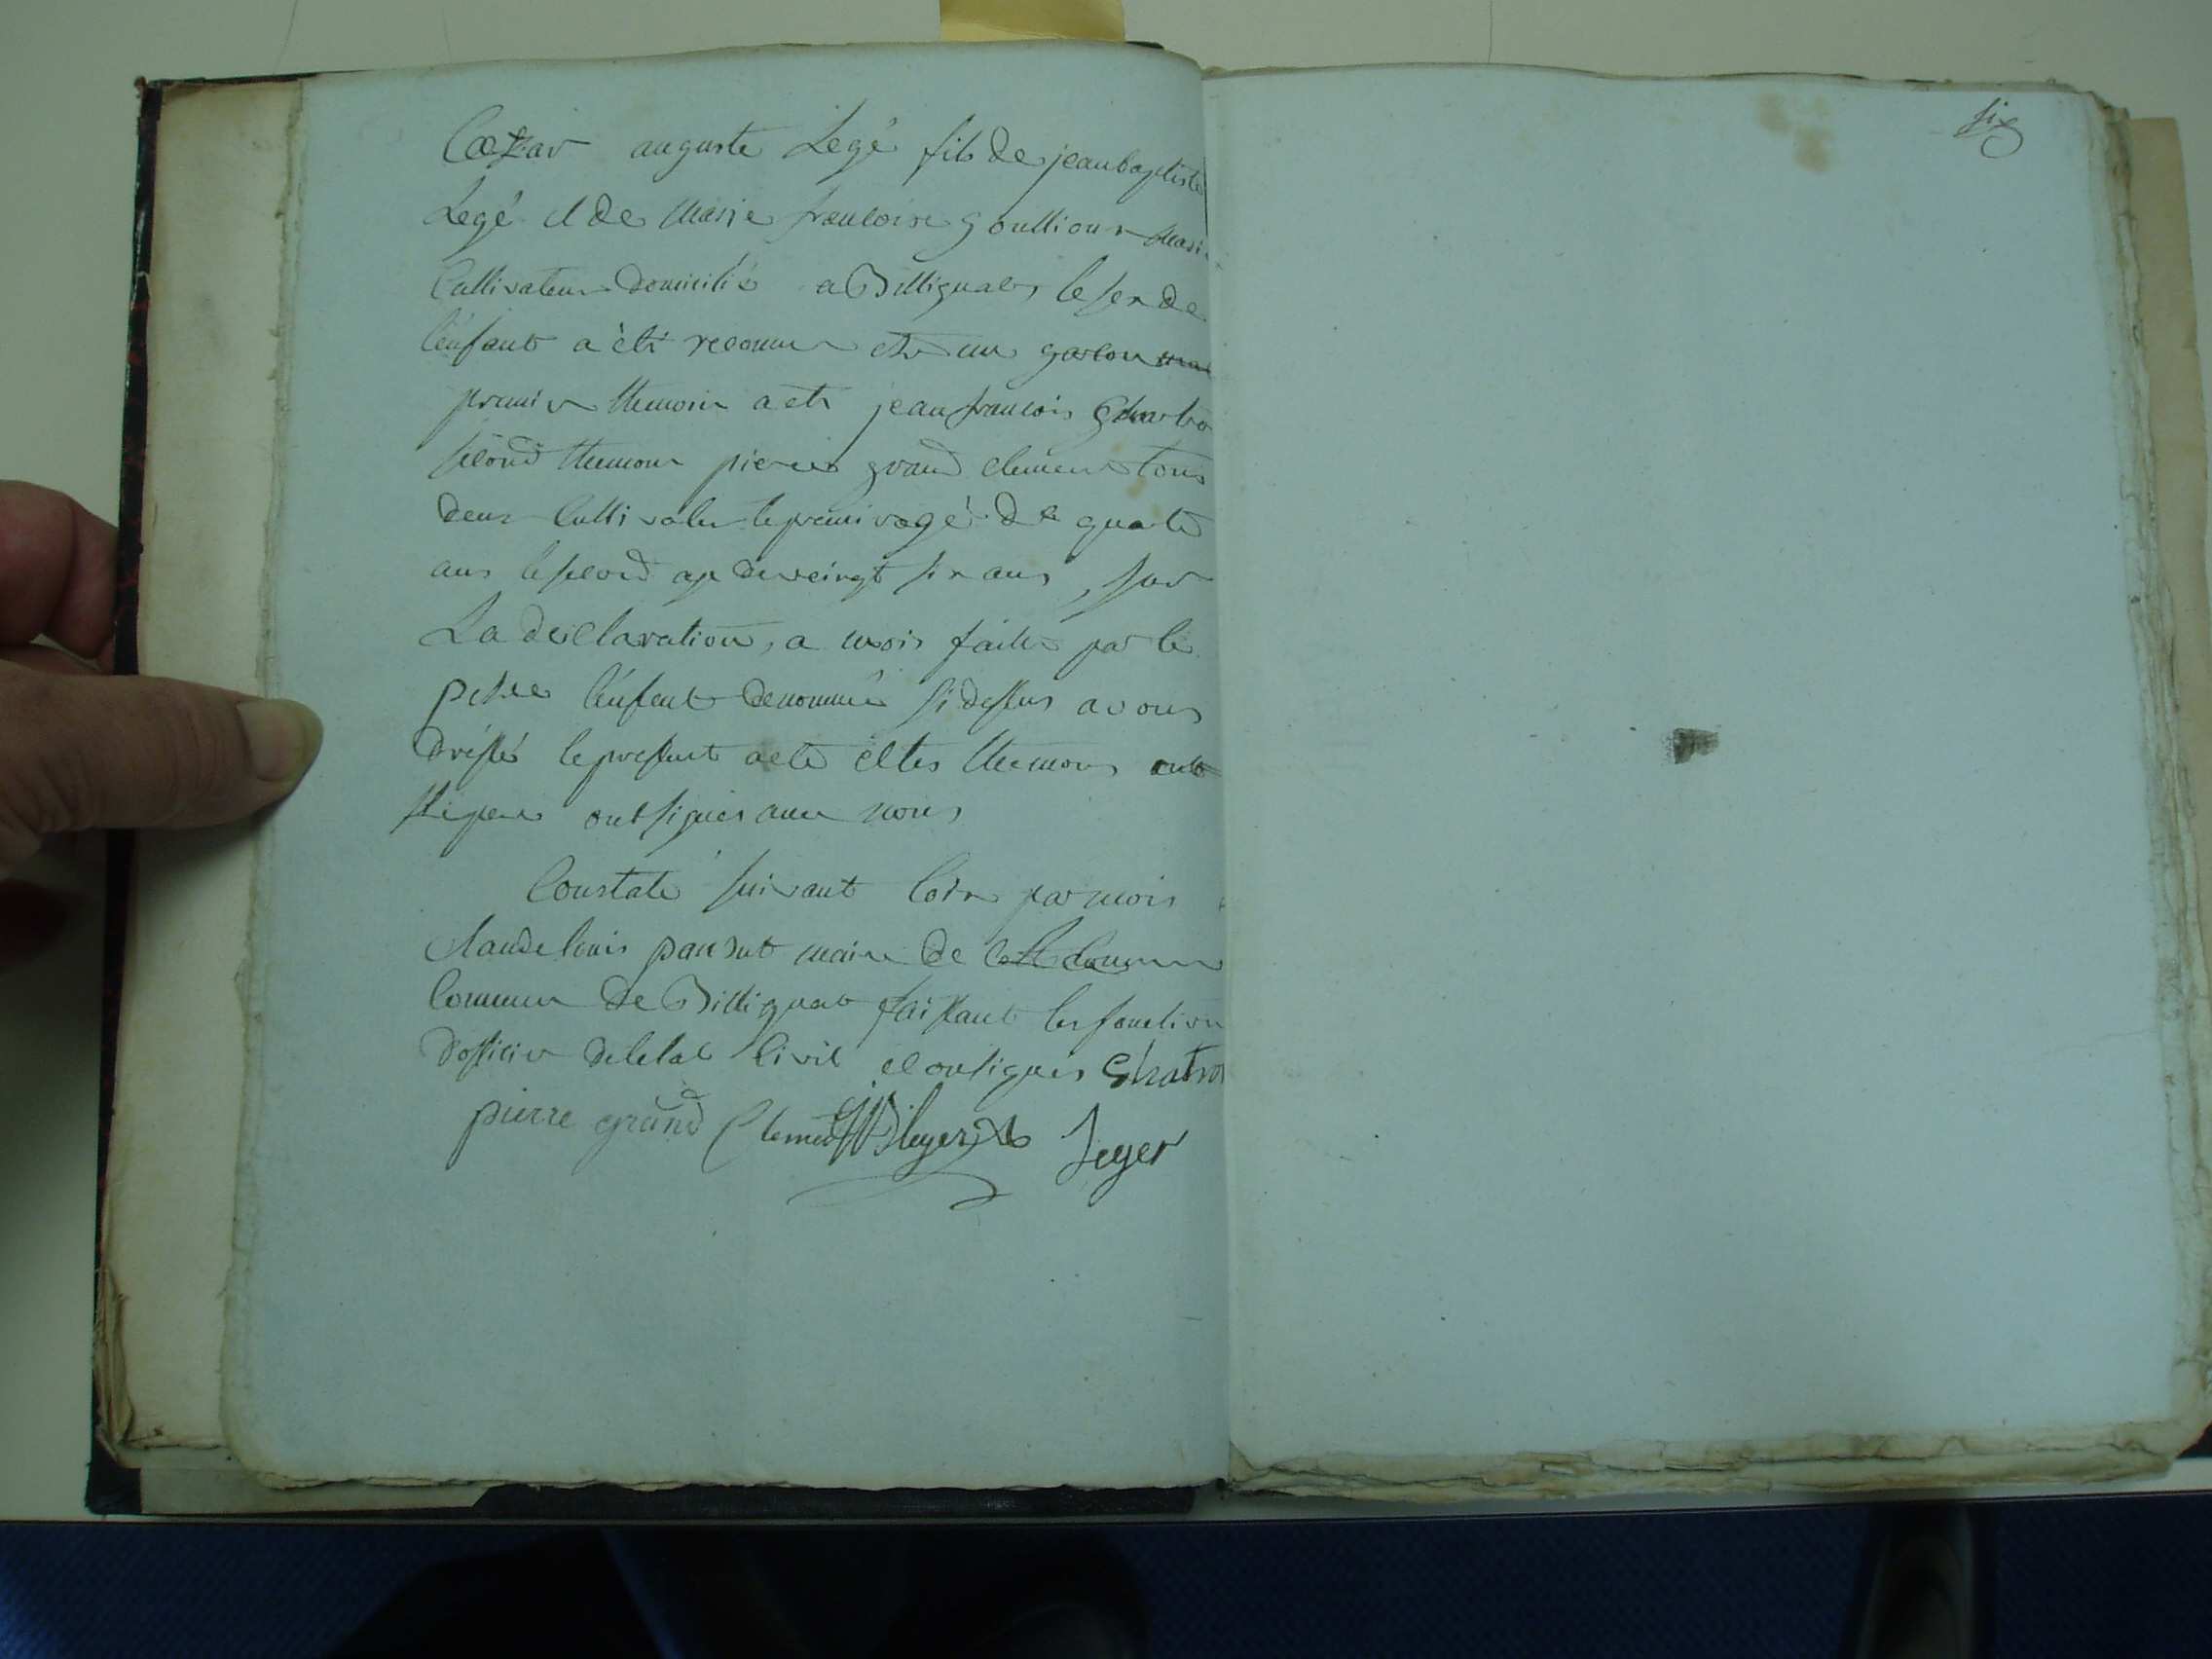 six
Cœzar auguste Legé fils de jean baptiste
Legé et de Marie francoise goullioux
Cultivateur domicilié a Billignat, le sex de
lénfant a èté reconnu etre un garcon
premier themoin a etè jean francois
second themoin pierre grand clement tous
deux cultivateur le premier agé de quarte
ans le second age de veingt six ans, sur
La decclaration, a mois faitte par le
pere lénfant denommé si dessus avons
dréssé le present acte et les themoins
le pere ont signés avec nous
Constaté suivant loix par mois
Claude louis pansut maire de
Commune de Billignat faissant les fonction
dofficier de letat Civil et on signés
pierre grand Clement JB leger Leger